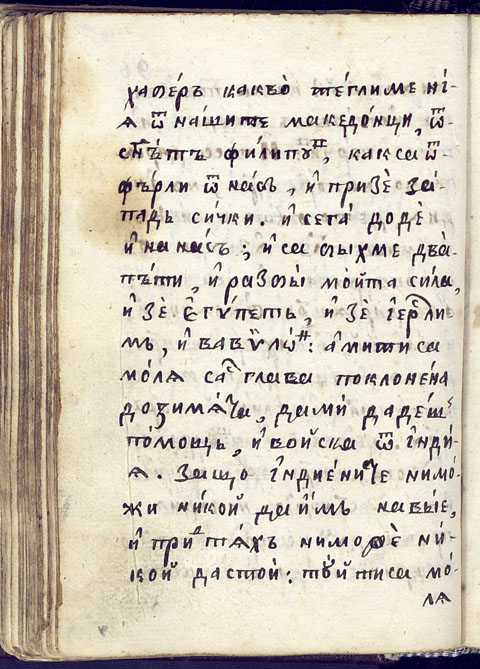 хаберъ какво̀ те́глиме ні-
ѧ ѿ на́шите македо́нци, ѿ
сн҃ътъ фи́липуⷩ҇, какса ѿ
фъ́рли ѿ на́съ, и҆ призѐ за́-
падь си́чки. и҆ сега̀ додѐ
и҆ на на́съ; и҆ са бы́хме два̀
пъ́ти, и҆ разбы̀ мо̀йта си́ла,
и҆ зѐ є҆гѵ́петь, и҆ зѐ і҆ерⷭ҇ли
мь, и҆ вавѷлѡ́ⷩ: а҆ми ти са
мо́лѧ саⷭ҇ глава̀ поклоне́на
дозимѧ́та, да мѝ даде́шъ
по́мощь, и҆ во́йска ѿ і҆нді́-
ѧ. Защо̀ і҆ндіе́ниⷮе нимо́-
жи ни́кой да и҆́мъ навые,
и҆ приⷣ тѧ́хъ ниможѐ ни́-
кой дастои̇̀; тꙋ́й ти са мо́
лѧ